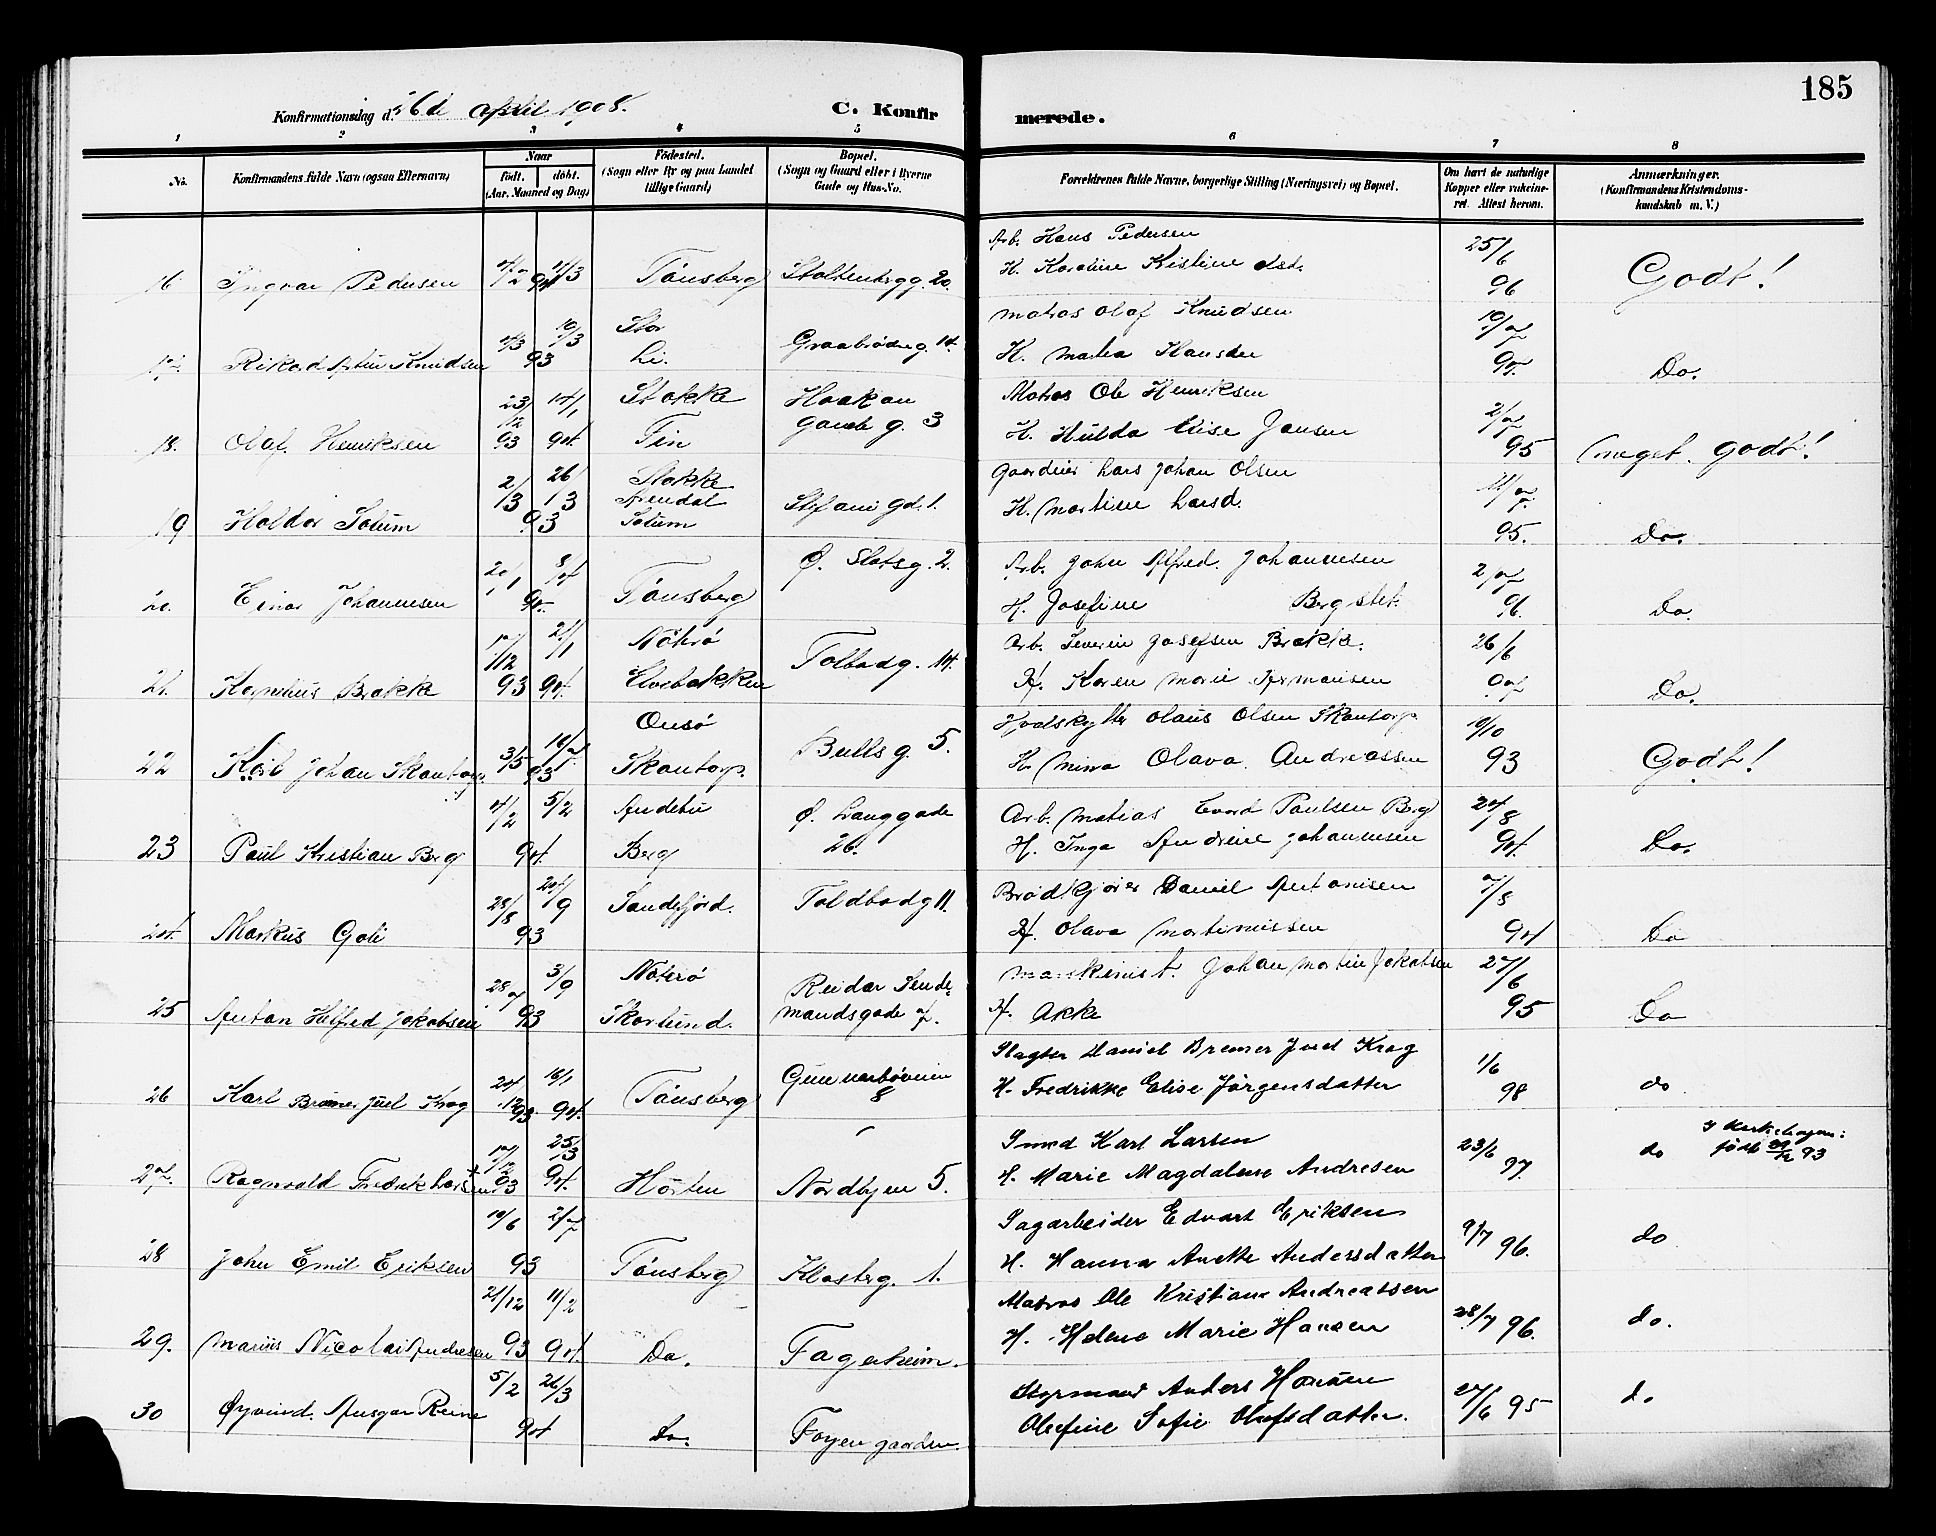 185
Konfirmationsdag d. April 1908. C. Konfirmerede.
1 2 3 4 5 6 7 8
No. Konfirmandens fulde Navn (ogsaa Efternavn) Naar födt. döbt. (Aar, Maaned og Dag) Födested. (Sogn eller By og paa Landet tillige Gaard) Bopæl. (Sogn og Gaard eller i Byerne Gade og Hus-No. Forældrenes fulde Navne, borgerlige Stilling (Næringsvei) og Bopæl. Om havt de naturlige Kopper eller vakcineret. Attest herom. Anmærkninger. (Konfirmandens Kristendomskundskab m. V.)
Arb. Hans Pedersen 25/6
16 Ingvar Pedersen 4/2 94 11/3 Tönsberg Stoltenbergg. 20. H. Karoline Kristine 96 Godt!
Matros Olaf Knudsen
17. Rikard Knudsen 4/3 93 10/3 Graabrödreg. 14. H. Hansen 95. Do.
23/12 93 14/1 94 Stokke Haakon Matros Ole Henriksen 2/7
18. Olaf Henriksen Fin gamle g. 3 H. Hulda Elise Jansen 95 Meget godt!
2/3 26/3 Stokke Gaardeier Lars Johan Olsen 11/7
19 Haldor Solum 93 Arendal Solum Stefani gd. 1. H. Martine Larsd. 95. Do.
20/1 8/4 Ø. Slotsg. 2. Arb. Johan Alfred Johannesen 2/7
20. Einar Johannesen Tönsberg H. Josefine Bergstet. 96. Do.
21/1 Nöttrö Arb. Severin Josefsen Brække. 26/6
21. Kornelius Brække 93 94. Elvebakken Tolbodg. 14. H. Karen Marie Do.
Onsö Olaus Olsen Skantorp 10/10
22 Karl Johan Skantorp 3/5 93 Skantorp. Bullsg. 5. H. Mina Olava Andreassen 93 Godt!
4/2 5/2 Andebu Ø. Langgade Arb. Matias Evard Paulsen Berg 24/8
23 Paul Kristian Berg 94. Berg 26. H. Inga Andrine Johannesen 94. Do.
28/8 24/9 Sandefjord. Toldbodg 11. Brödkjörer Daniel Antonisen 7/8
24. Markus Goli 93 H. Olava Martinussen 94 Do
28/7 3/9 Nöterö Reidar Sende- Maskinist. Johan Martin Jakobsen 27/6
25 Anton Hilfred Jakobsen 93 Skarlund. mandsgade 7. H. Akke 95 Do
Slagter Daniel Bremer Juel Krog 1/6
26 Karl Bremer Juel Krog 24/12 93 16/1 94. Tönsberg Gunnarböveien 8 H. Fredrikke Elise Jörgensdatter 98 do
25/3 Smed Karl Larsen 23/6 97. I Kirkebogen:
27. Ragnvald Fredrik Larsen 93 94. Horten Nordbyen 5. H. Marie Magdalene Andresen do födt 93
10/6 2/7 Sagarbeider Edvart Eriksen 9/7 96.
28 John Emil Eriksen 93 Tönsberg Klosterg. 1. H. Hanna Anette Andersdatter do
21/12 11/2 Matros Ole Kristian Andreassen 28/7 96.
29. Marius Nicolai Andresen 93 94. Do. Fagerheim. H. Helene Marie Hansen do.
5/2 26/3 Styrmand Anders Hansen 27/6 95
30 Øyvind Ansgar Reine 94 Do. Foyengaarden. Olefine Sofie Olufsdatter. do